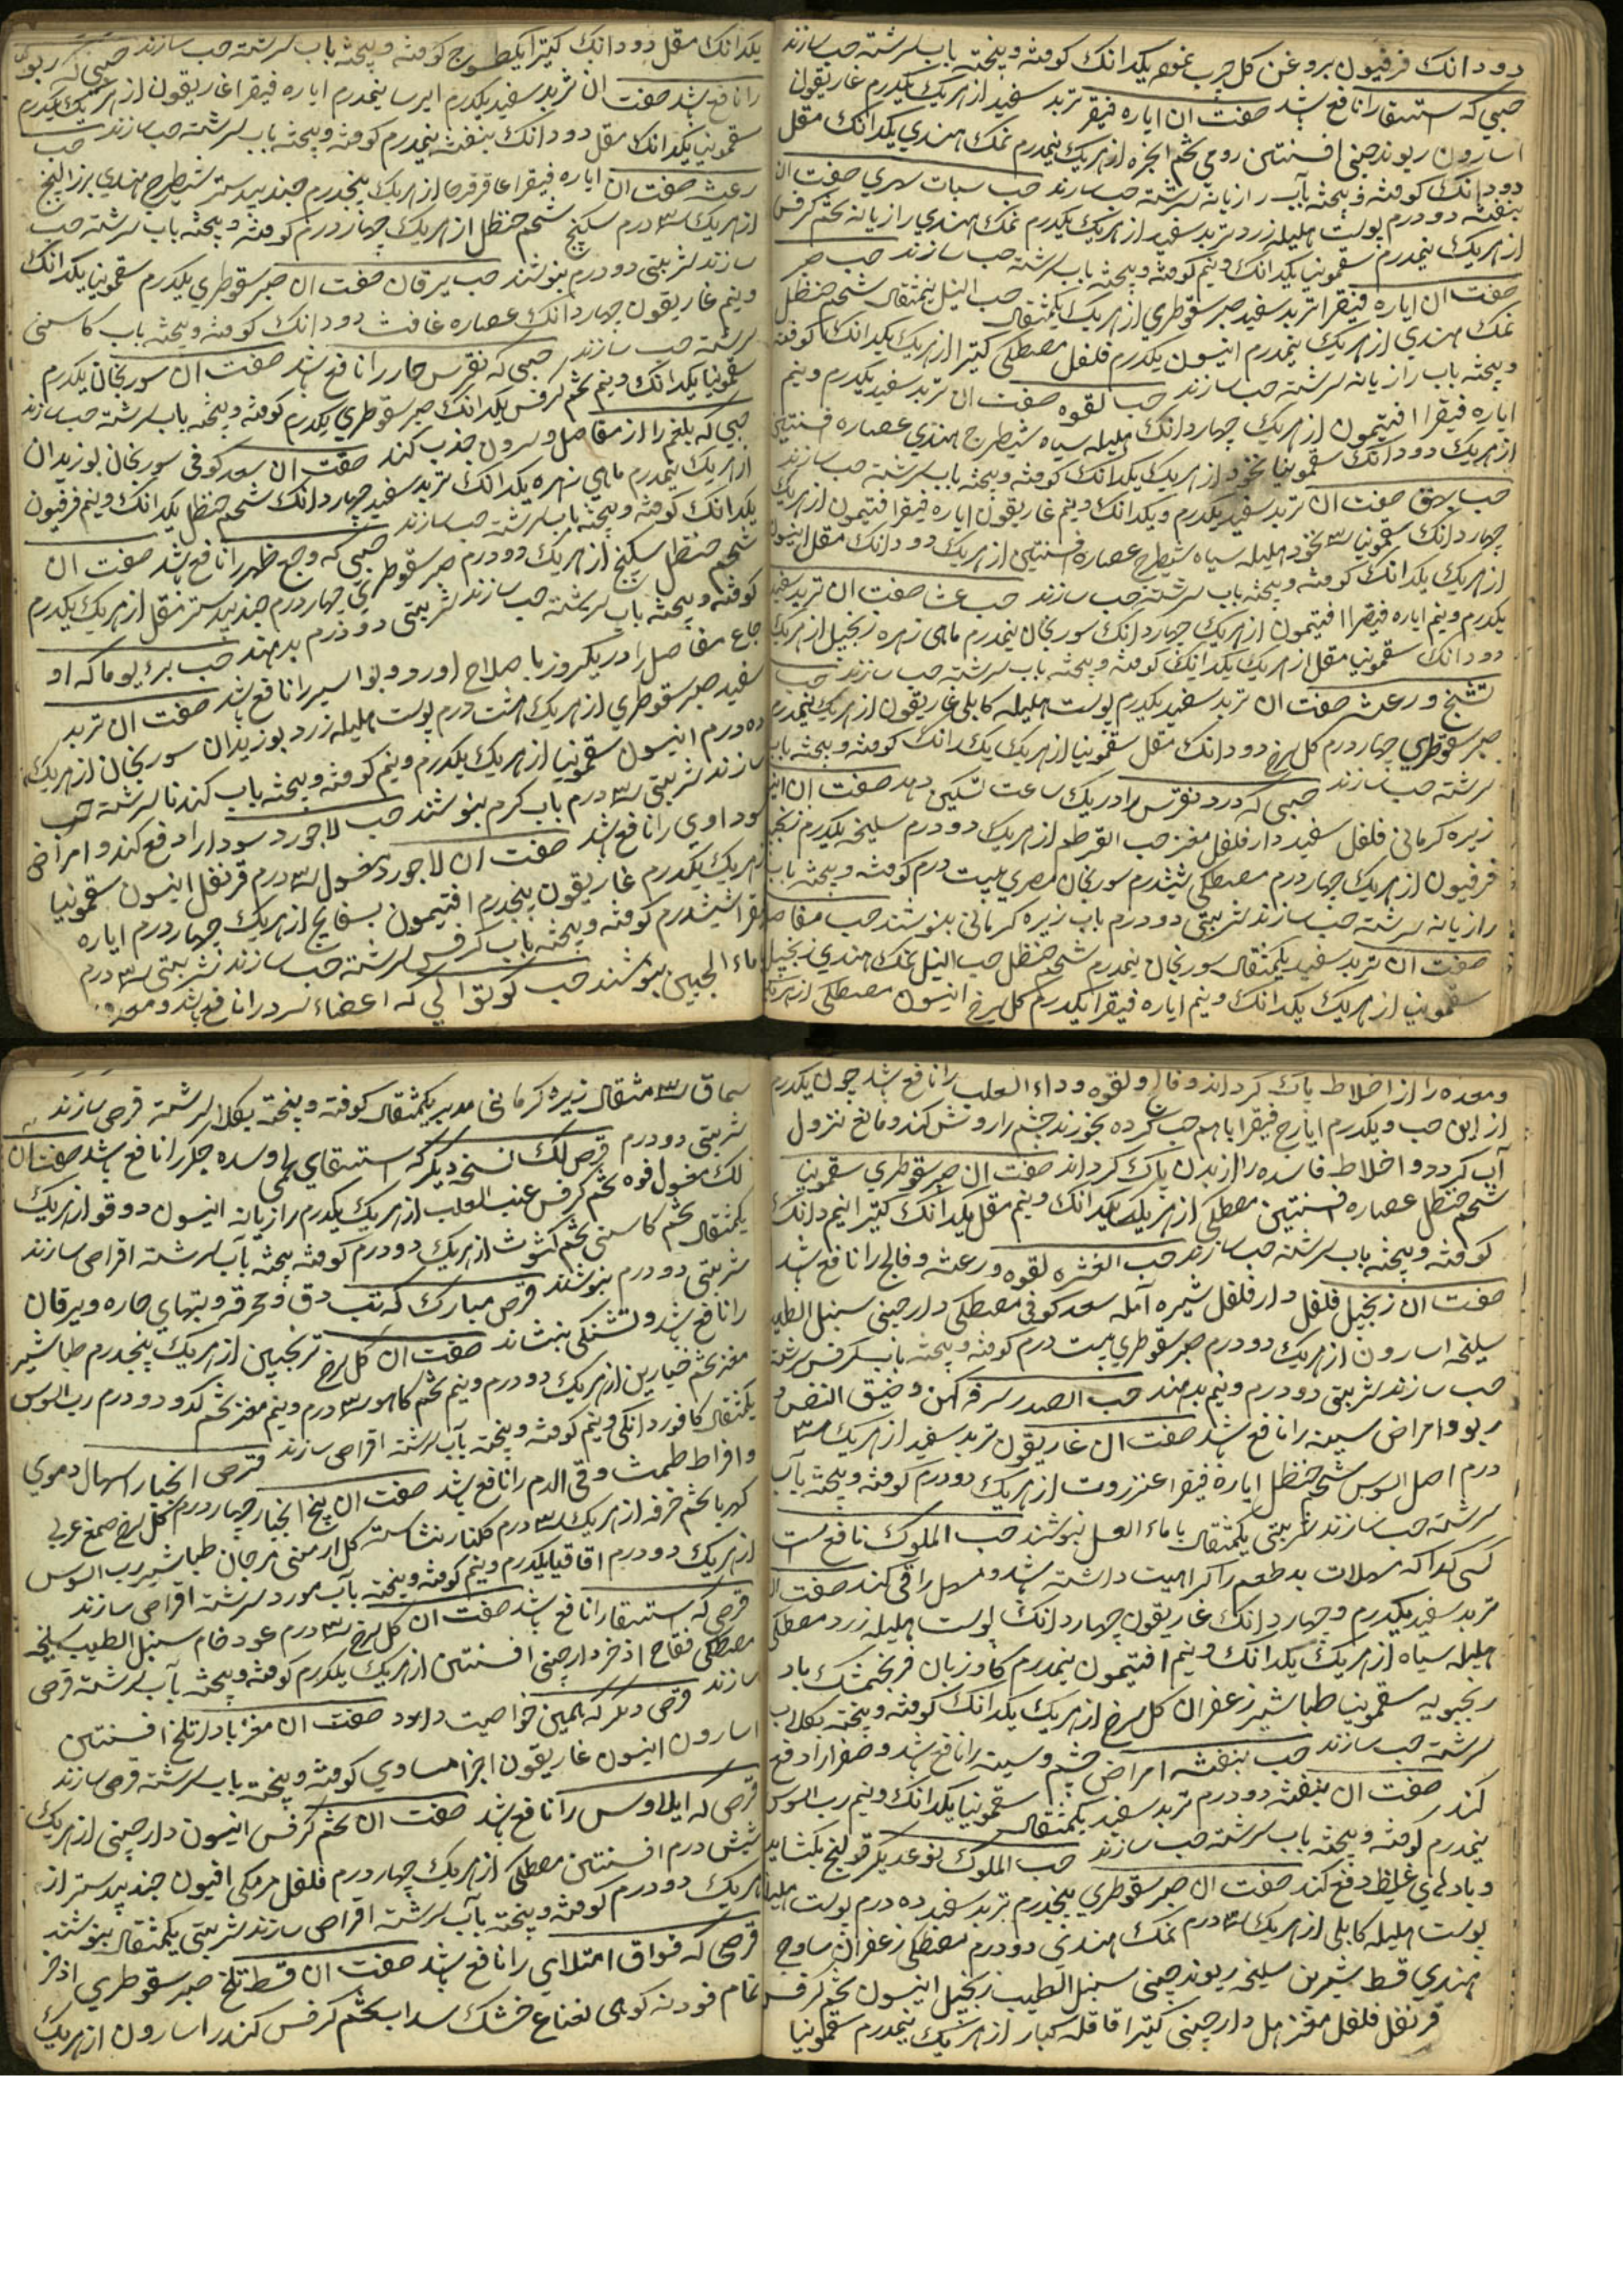 دودانك فرفيون بروغن كل چرب نموه يكدانك كوفته و بيخته باب سرشته حب سازند
حبي كه استسقا را نافع باشد صفت ان اياره فيقرا تربد سفيد از هريك يكدرم غاريقون
اسارون ريوند چيني افسنتين رومي تخم انجره از هريك نيمدرم نمك هندي يكدانك مقل
دودانك كوفته و بيخته بآب رازيانه سرشته حب سازند حب سبات سهري صفت ان
بنفشه دودرم پوست هليله زرد تربد سفيد از هريك يكدرم نمك هندي رازيانه تخم كرفس
از هريك نيمدرم سقمونيا يكدانك و نيم كوفته و بيخته باب سرشته حب سازند حب صبر
صفت ان اياره فيقرا تربد سفيد صبر سقوطري از هريك يكمثقال حب النيل نيمثقال شحم حنظل
نمك هندي از هريك نيمدرم انيسون يكدرم فلفل مصطكي كتيرا از هريك يكدانك كوفته
و بيخته باب رازيانه سرشته حب سازند حب لقوه صفت ان تربد سفيد يكدرم و نيم
اياره فيقرا افتيمون از هريك چهاردانك هليله سياه شيطرج هندي عصاره افسنتين
از هريك دودانك سقمونيا نخود از هريك يكدانك كوفته و بيخته باب سرشته حب سازند
حب بهق صفت ان تربد سفيد يكدرم و يكدانك و نيم غاريقون اياره فيقرا افتيمون از هريك
چهاردانك سقمونيا ۳ نخود هليله سياه شيطرج عصاره افسنتين از هريك دودانك مقل انيسون
از هريك يكدانك كوفته و بيخته باب سرشته حب سازند حب عشا صفت ان تربد سفيد
يكدرم و نيم اياره فيقرا افتيمون از هريك چهاردانك سورنجان نيمدرم ماهي زهره زنجبيل از هريك
دودانك سقمونيا مقل از هريك يكدانك كوفته و بيخته باب سرشته حب سازند حب
تشنج و رعشه صفت ان تربد سفيد يكدرم پوست هليله كابلي غاريقون از هريك نيمدرم
صبر سقوطري چهاردرم كل سرخ دودانك مقل سقمونيا از هريك يكدانك كوفته و بيخته باب
سرشته حب سازند حبي كه درد نقرس را در يك ساعت تسكين دهد صفت ان
زيره كرماني فلفل سفيد دارفلفل مغز حب القرطم از هريك دودرم سليخه يكدرم
فرفيون از هريك چهاردرم مصطكي ششدرم سورنجان مصري بيست درم كوفته و بيخته باب
رازيانه سرشته حب سازند شربتي دودرم باب زيره كرماني بنوشند حب مفاصل
صفت ان تربد سفيد يكمثقال سورنجان نيمدرم شحم حنظل حب النيل نمك هندي زنجبيل
سقمونيا از هريك يكدانك و نيم اياره فيقرا يكدرم كل سرخ انيسون مصطكي از هريك
يكدانك مقل دودانك كتيرا يكطسوج كوفته و بيخته باب سرشته حب سازند حبي كه ربو
را نافع باشد صفت ان تربد سفيد يكدرم ايرسا نيمدرم اياره فيقرا غاريقون از هريك يكدرم
سقمونيا يكدانك مقل دودانك بنفشه نيمدرم كوفته و بيخته باب سرشته حب سازند حب
رعشه صفت ان اياره فيقرا عاقرقرحا از هريك پنجدرم جندبيدستر شيطرج هندي بزر البنج
از هريك ۳ درم سكبينج شحم حنظل از هريك چهاردرم كوفته و بيخته باب سرشته حب
سازند شربتي دودرم بنوشند حب يرقان صفت ان صبر سقوطري يكدرم سقمونيا يكدانك
و نيم غاريقون چهاردانك عصاره غافث دودانك كوفته و بيخته باب كاسني
سرشته حب سازند حبي كه نقرس حار را نافع باشد صفت ان سورنجان يكدرم
سقمونيا يكدانك و نيم تخم كرفس يكدانك صبر سقوطري يكدرم كوفته و بيخته باب سرشته حب سازند
حبي كه بلغم را از مفاصل و سرون جذب كند صفت ان سعد كوفي سورنجان بوزيدان
از هريك نيمدرم ماهي زهره يكدانك تربد سفيد چهاردانك شحم حنظل يكدانك و نيم فرفيون
يكدانك كوفته و بيخته باب سرشته حب سازند حبي كه وجع ظهر را نافع باشد صفت ان
شحم حنظل سكبينج از هريك دودرم صبر سقوطري چهاردرم جندبيدستر مقل از هريك يكدرم
كوفته و بيخته باب سرشته حب سازند شربتي دودرم بدهند حب برء يوما كه او
جاع مفاصل را در يكروز باصلاح اورد و بواسير را نافع باشد صفت ان تربد
سفيد صبر سقوطري از هريك هشت درم پوست هليله زرد بوزيدان سورنجان از هريك
ده درم انيسون سقمونيا از هريك يكدرم و نيم كوفته و بيخته باب كندنا سرشته حب
سازند شربتي ۳ درم باب كرم بنوشند حب لاجورد سودا را دفع كند و امراض
سوداوي را نافع باشد صفت ان لاجورد مغسول ۳ درم قرنفل انيسون سقمونيا
از هريك يكدرم غاريقون پنجدرم افتيمون بسفايج از هريك چهاردرم اياره
فيقرا ششدرم كوفته و بيخته باب كرفس سرشته حب سازند شربتي ۳ درم
بماء الجبن بنوشند حب كوكوا لي كه اعضاء سر را نافع باشد و
و معده را از اخلاط پاك كرداند و فالج و لقوه و داء الثعلب را نافع باشد چون يكدرم
از اين حب و يكدرم ايارج فيقرا باهم حب كرده بخورند چشم را روشن كند و مانع نزول
آب كردد و اخلاط فاسده را از بدن پاك كرداند صفت ان صبر سقوطري سقمونيا
شحم حنظل عصاره افسنتين مصطكي از هريك يكدانك و نيم مقل يكدانك كتيرا نيم دانك
كوفته و بيخته باب سرشته حب سازند حب العشره لقوه و رعشه و فالج را نافع باشد
صفت ان زنجبيل فلفل دارفلفل شيره آمله سعد كوفي مصطكي دارچيني سنبل الطيب
سليخه اسارون از هريك دودرم صبر سقوطري بيست درم كوفته و بيخته باب كرفس سرشته
حب سازند شربتي دودرم و نيم بدهند حب الصدر سرفه كهن و ضيق النفس و
ربو و امراض سينه را نافع باشد صفت ان غاريقون تربد سفيد از هريك ۳
درم اصل السوس شحم حنظل اياره فيقرا عنزروت از هريك دودرم كوفته و بيخته بآب
سرشته حب سازند شربتي يكمثقال با ماء العسل بنوشند حب الملوك نافع است
كسي كه ازاكه مسهلات بد طعم را كراهيت داشته باشد و مسهل را قي كند صفت ان
تربد سفيد يكدرم و چهاردانك غاريقون چهاردانك پوست هليله زرد مصطكي
هليله سياه از هريك يكدانك و نيم افتيمون نيمدرم كاوزبان فرنجمشك باد
رنجبويه سقمونيا طباشير زعفران كل سرخ از هريك يكدانك كوفته و بيخته بكلاب
سرشته حب سازند حب بنفشه امراض چشم و سينه را نافع باشد و صفرا را دفع
كند صفت ان بنفشه دودرم تربد سفيد يكمثقال سقمونيا يكدانك و نيم رب السوس
نيمدرم كوفته و بيخته باب سرشته حب سازند حب الملوك نوعديكر قولنج بكشايد
و بادهاي غليظ دفع كند صفت ان صبر سقوطري پنجدرم تربد سفيد ده درم پوست هليله
پوست هليله كابلي از هريك ۳ درم نمك هندي دودرم مصطكي زعفران ساوج
هندي قسط شيرين سليخه ريوند چيني سنبل الطيب زنجبيل انيسون تخم كرفس
قرنفل فلفل مغز هل دارچيني كتيرا قاقله كبار از هريك نيمدرم سقمونيا
سماق ۳ مثقال زيره كرماني مدبر يكمثقال كوفته و بيخته بكلاب سرشته قرص سازند
شربتي دودرم قرص لك نسخه ديكر كه استسقاي لحمي و سده جكر را نافع باشد صفت ان
لك مغسول فوه تخم كرفس عنب الثعلب از هريك يكدرم رازيانه انيسون دوقو از هريك
يكمثقال تخم كاسني تخم كشوث از هريك دودرم كوفته بيخته بآب سرشته اقراص سازند
شربتي دودرم بنوشند قرص مبارك كه تب دق و محرقه و تبهاي حاره و يرقان
را نافع باشد و تشنكي بنشاند صفت ان كل سرخ ترنجبين از هريك پنجدرم طباشير
مغز تخم خيارين از هريك دودرم و نيم تخم كاهو ۳ درم و نيم مغز تخم كدو دودرم رب السوس
يكمثقال كافور دانكي و نيم كوفته و بيخته بآب سرشته اقراص سازند قرص انجبار اسهال دموي
و افراط طمث و قي الدم را نافع باشد صفت ان بيخ انجبار چهاردرم كل سرخ صمغ عربي
كهربا تخم خرفه از هريك ۳ درم كلنار نشاسته كل ارمني مرجان طباشير رب السوس
از هريك دودرم اقاقيا يكدرم و نيم كوفته و بيخته بآب مورد سرشته اقراص سازند
قرصي كه استسقا را نافع باشد صفت ان كل سرخ ۳ درم عود خام سنبل الطيب سليخه
مصطكي فقاح اذخر دارچيني افسنتين از هريك يكدرم كوفته و بيخته بآب سرشته قرص
سازند قرصي ديكر كه همين خواصيت دارد صفت ان مغز بادام تلخ افسنتين
اسارون انيسون غاريقون اجزا مساوي كوفته و بيخته باب سرشته قرص سازند
قرصي كه ايلاوس را نافع باشد صفت ان تخم كرفس انيسون دارچيني از هريك
شش درم افسنتين مصطكي از هريك چهاردرم فلفل مرمكي افيون جندبيدستر از
هريك دودرم كوفته و بيخته بآب سرشته اقراص سازند شربتي يكمثقال بنوشند
قرصي كه فواق امتلاي را نافع باشد صفت ان قسط تلخ صبر سقوطري اذخر
نمام فودنه كوهي نعناع خشك سداب تخم كرفس كندر اسارون از هريك